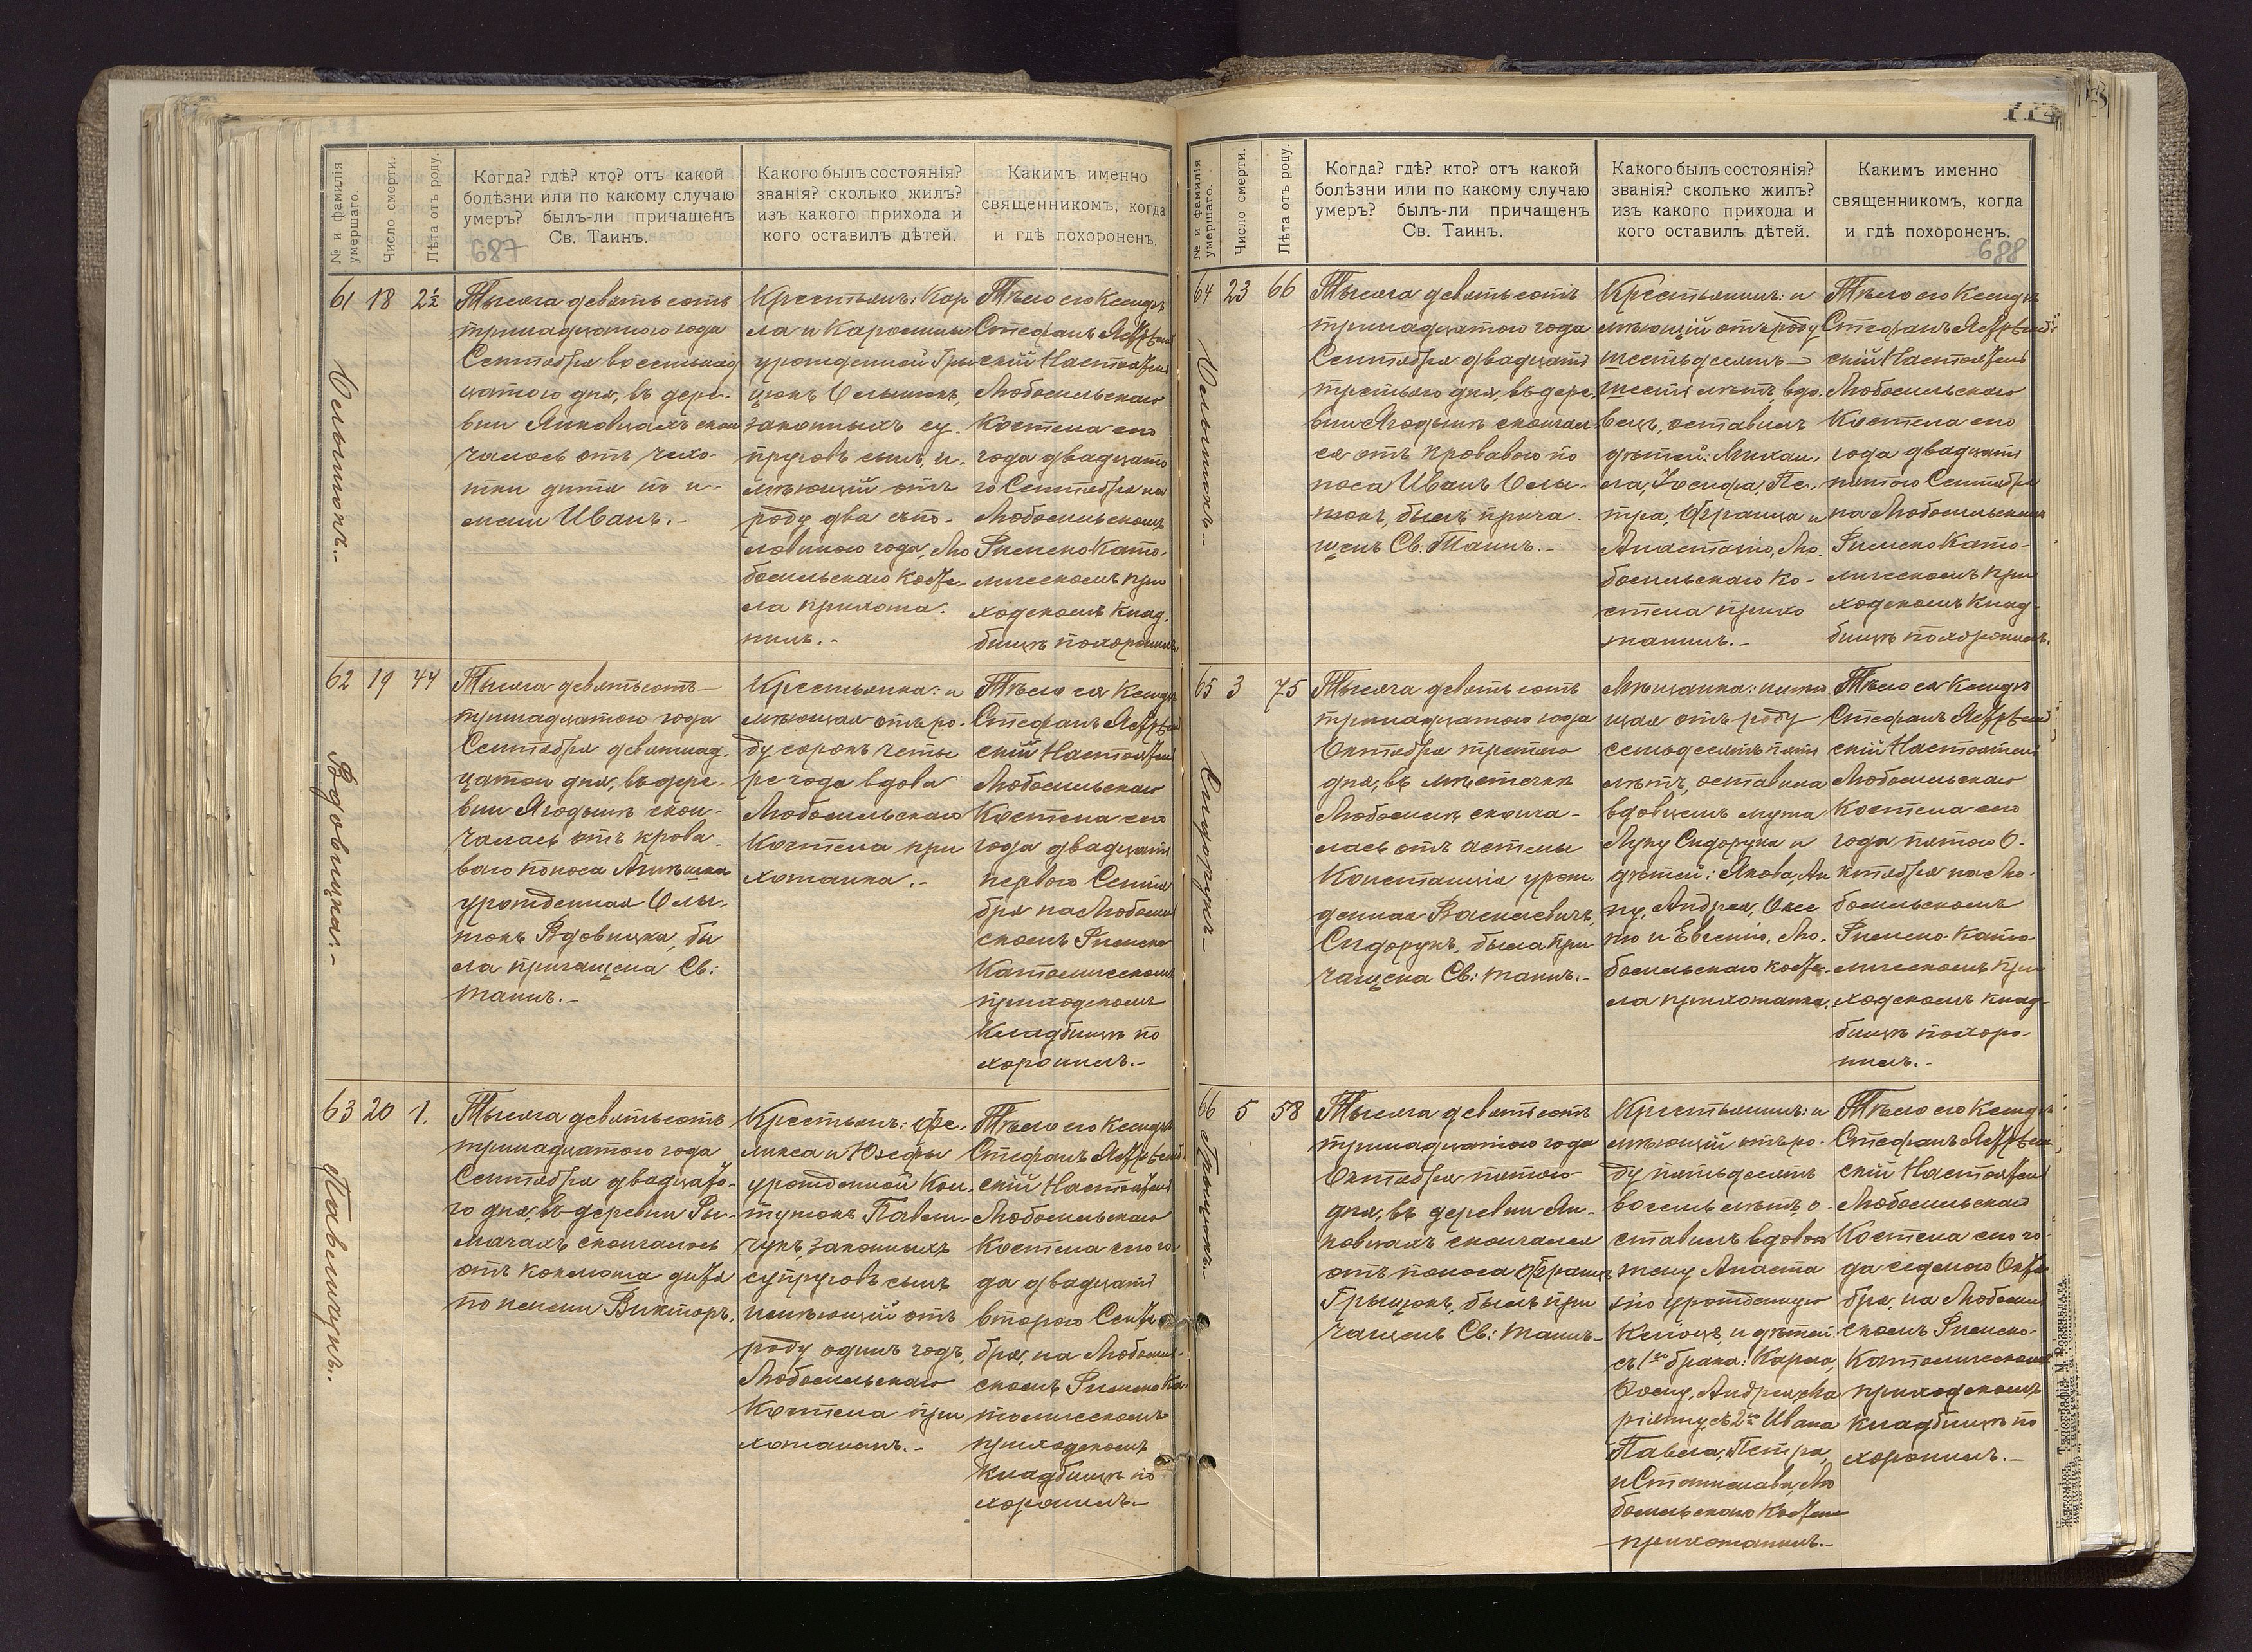 № и фамилія умершаго.
Число смерти.
Лѣта отъ роду.
Когда? гдѣ? кто? отъ какой
болѣзни или по какому случаю
умеръ? былъ-ли причащенъ
Св. Таинъ.
687
Какого былъ состоянія?
званія? сколько жилъ?
изъ какого прихода и
кого оставилъ дѣтей.
Какимъ именно
священникомъ, когда
и гдѣ похороненъ.
61
18
2½
Тысяча девятьсотъ
тринадцатого года
Сентября восемнад
цатого дня, въ дерe-
вни Янковцахъ скон
чалось отъ чахо-
тки дитя по и-
мени Иванъ.-
Крестьянъ: Кар
ла и Каролины
урожденной Гры
цюкъ
законныхъ су-
пруговъ сынъ, и-
мѣющій отъ
роду два съ по-
ловиною года, Лю
бомльскаго косте-
ла прихожа-
нинъ.-
Тѣло его Ксендзъ
Стефанъ
скій Настоятель
Любомльскаго
Костела сего
года двадцато
го Сентября на
Любомльскомъ
Римско Като-
лическомъ при
ходскомъ клад-
бищѣ похоронилъ
62
19
44
Вдовицка.-
Тысяча девятьсотъ
тринадцатого года
Сентября девятнад-
цатого дня, въ дере-
вни Ягодынѣ скон-
чалась отъ крова-
ваго поноса Агнѣшка
урожденная
Вдовицка, бы
ла причащена Св:
Таинъ.-
Крестьянка: и
мѣющая отъ ро-
ду сорокъ четы
ре года вдова
Любомльскаго
Костела при
хожанка.-
Тѣло ея Ксендзъ
Стефанъ
скій Настоятель
Любомльскаго
Костела сего
года двадцать
перваго Сентя
бря на Любомль
скомъ Римско
Католическомъ
приходскомъ
Кладбищѣ по
хоронилъ.-
63
20
1.
Павельчукъ.
Тысяча девятьсотъ
тринадцатого года
Сентября двадцато-
го дня, въ деревни Ры-
мачахъ скончалось
отъ коклюша дитя
по имени Викторъ.
Крестьянъ: Фе-
ликса и Юзефы
урожденной Кон-
тукъ Павель-
чукъ, законныхъ
супруговъ сынъ
имѣющій отъ
роду одинъ годъ,
Любомльскаго
Костела при
хожанинъ.-
Тѣло его Ксендзъ
Стефанъ
скій Настоятель
Любомльскаго
Костела сего го-
да двадцать
второго Сентя
бря, на Любомль-
скомъ Римско Ка-
толическомъ
приходскомъ
Кладбищѣ по
хоронилъ.-
№ и фамилія умершаго.
Число смерти.
Лѣта отъ роду.
Когда? гдѣ? кто? отъ какой
болѣзни или по какому случаю
умеръ? былъ-ли причащенъ
Св. Таинъ.
Какого былъ состоянія?
званія? сколько жилъ?
изъ какого прихода и
кого оставилъ дѣтей.
Какимъ именно
священникомъ, когда
и гдѣ похороненъ.
688
64
23
66
Тысяча девятьсотъ
тринадцатого года
Сентября двадцать
третьяго дня, въ дере-
вни Ягодынѣ скончал
ся отъ кроваваго по
носа Иванъ
былъ прича-
щенъ Св: Таинъ.-
Крестьянинъ: и
мѣющій отъ роду
шестьдесятъ
шесть лѣтъ, вдо-
вецъ, оставилъ
дѣтей: Михаи-
ла, Іосифа, Пе-
тра, Франца и
Анастазію, Лю-
бомльскаго Ко-
стела прихо
жанинъ.-
Тѣло его Ксендзъ
Стефанъ
скій Настоятель
Любомльскаго
Костела сего
года двадцать
пятого Сентября
на Любомльскомъ
Римско Като-
лическомъ при
ходскомъ клад-
бищѣ похоронилъ.
65
3
75
Сидорукъ.-
Тысяча девятьсотъ
тринадцатого года
Октября третяго
дня, въ мѣстечкѣ
Любомлѣ сконча-
лась отъ астмы
Констанція урож-
денная Василевичъ
Сидорукъ, была при
чащена Св: Таинъ.-
Мѣщанка: имѣю
щая отъ роду
семьдесятъ пять
лѣтъ, оставила
вдовцемъ мужа
Луку Сидорука и
дѣтей: Якова, Ан
ну, Андрея,
и Евгенію, Лю-
бомльскаго косте-
ла прихожанка.
Тѣло ея Ксендзъ
Стефанъ
скій Настоятель
Любомльскаго
Костела сего
года пятого О-
ктября на Лю-
бомльскомъ
Римско-Като-
лическомъ при
ходскомъ клад-
бищѣ похоро-
нилъ.-
66
5
58
Грыцюкъ.-
Тысяча девятьсотъ
тринадцатого года
Октября пятого
дня, въ деревни Ян-
ковцахъ скончался
отъ поноса Францъ
Грыцюкъ, былъ при
чащенъ Св: Таинъ.-
Крестьянинъ: и
мѣющій отъ ро-
ду пятьдесятъ
восемь лѣтъ, о-
ставилъ вдовою
жену Анаста
зію урожденную
и дѣтей
съ 1го брака: Карла,
Андрея, Ма
ріянну, съ 2го Ивана
Павла, Петра,
и Станислава, Лю
бомльскаго Костела
прихожанинъ.-
Тѣло его Ксендзъ
Стефанъ
скій Настоятель
Любомльскаго
Костела сего го-
да седмого Октя
бря, на Любомль
скомъ Римско-
Католическомъ
приходскомъ
кладбищѣ по
хоронилъ.-